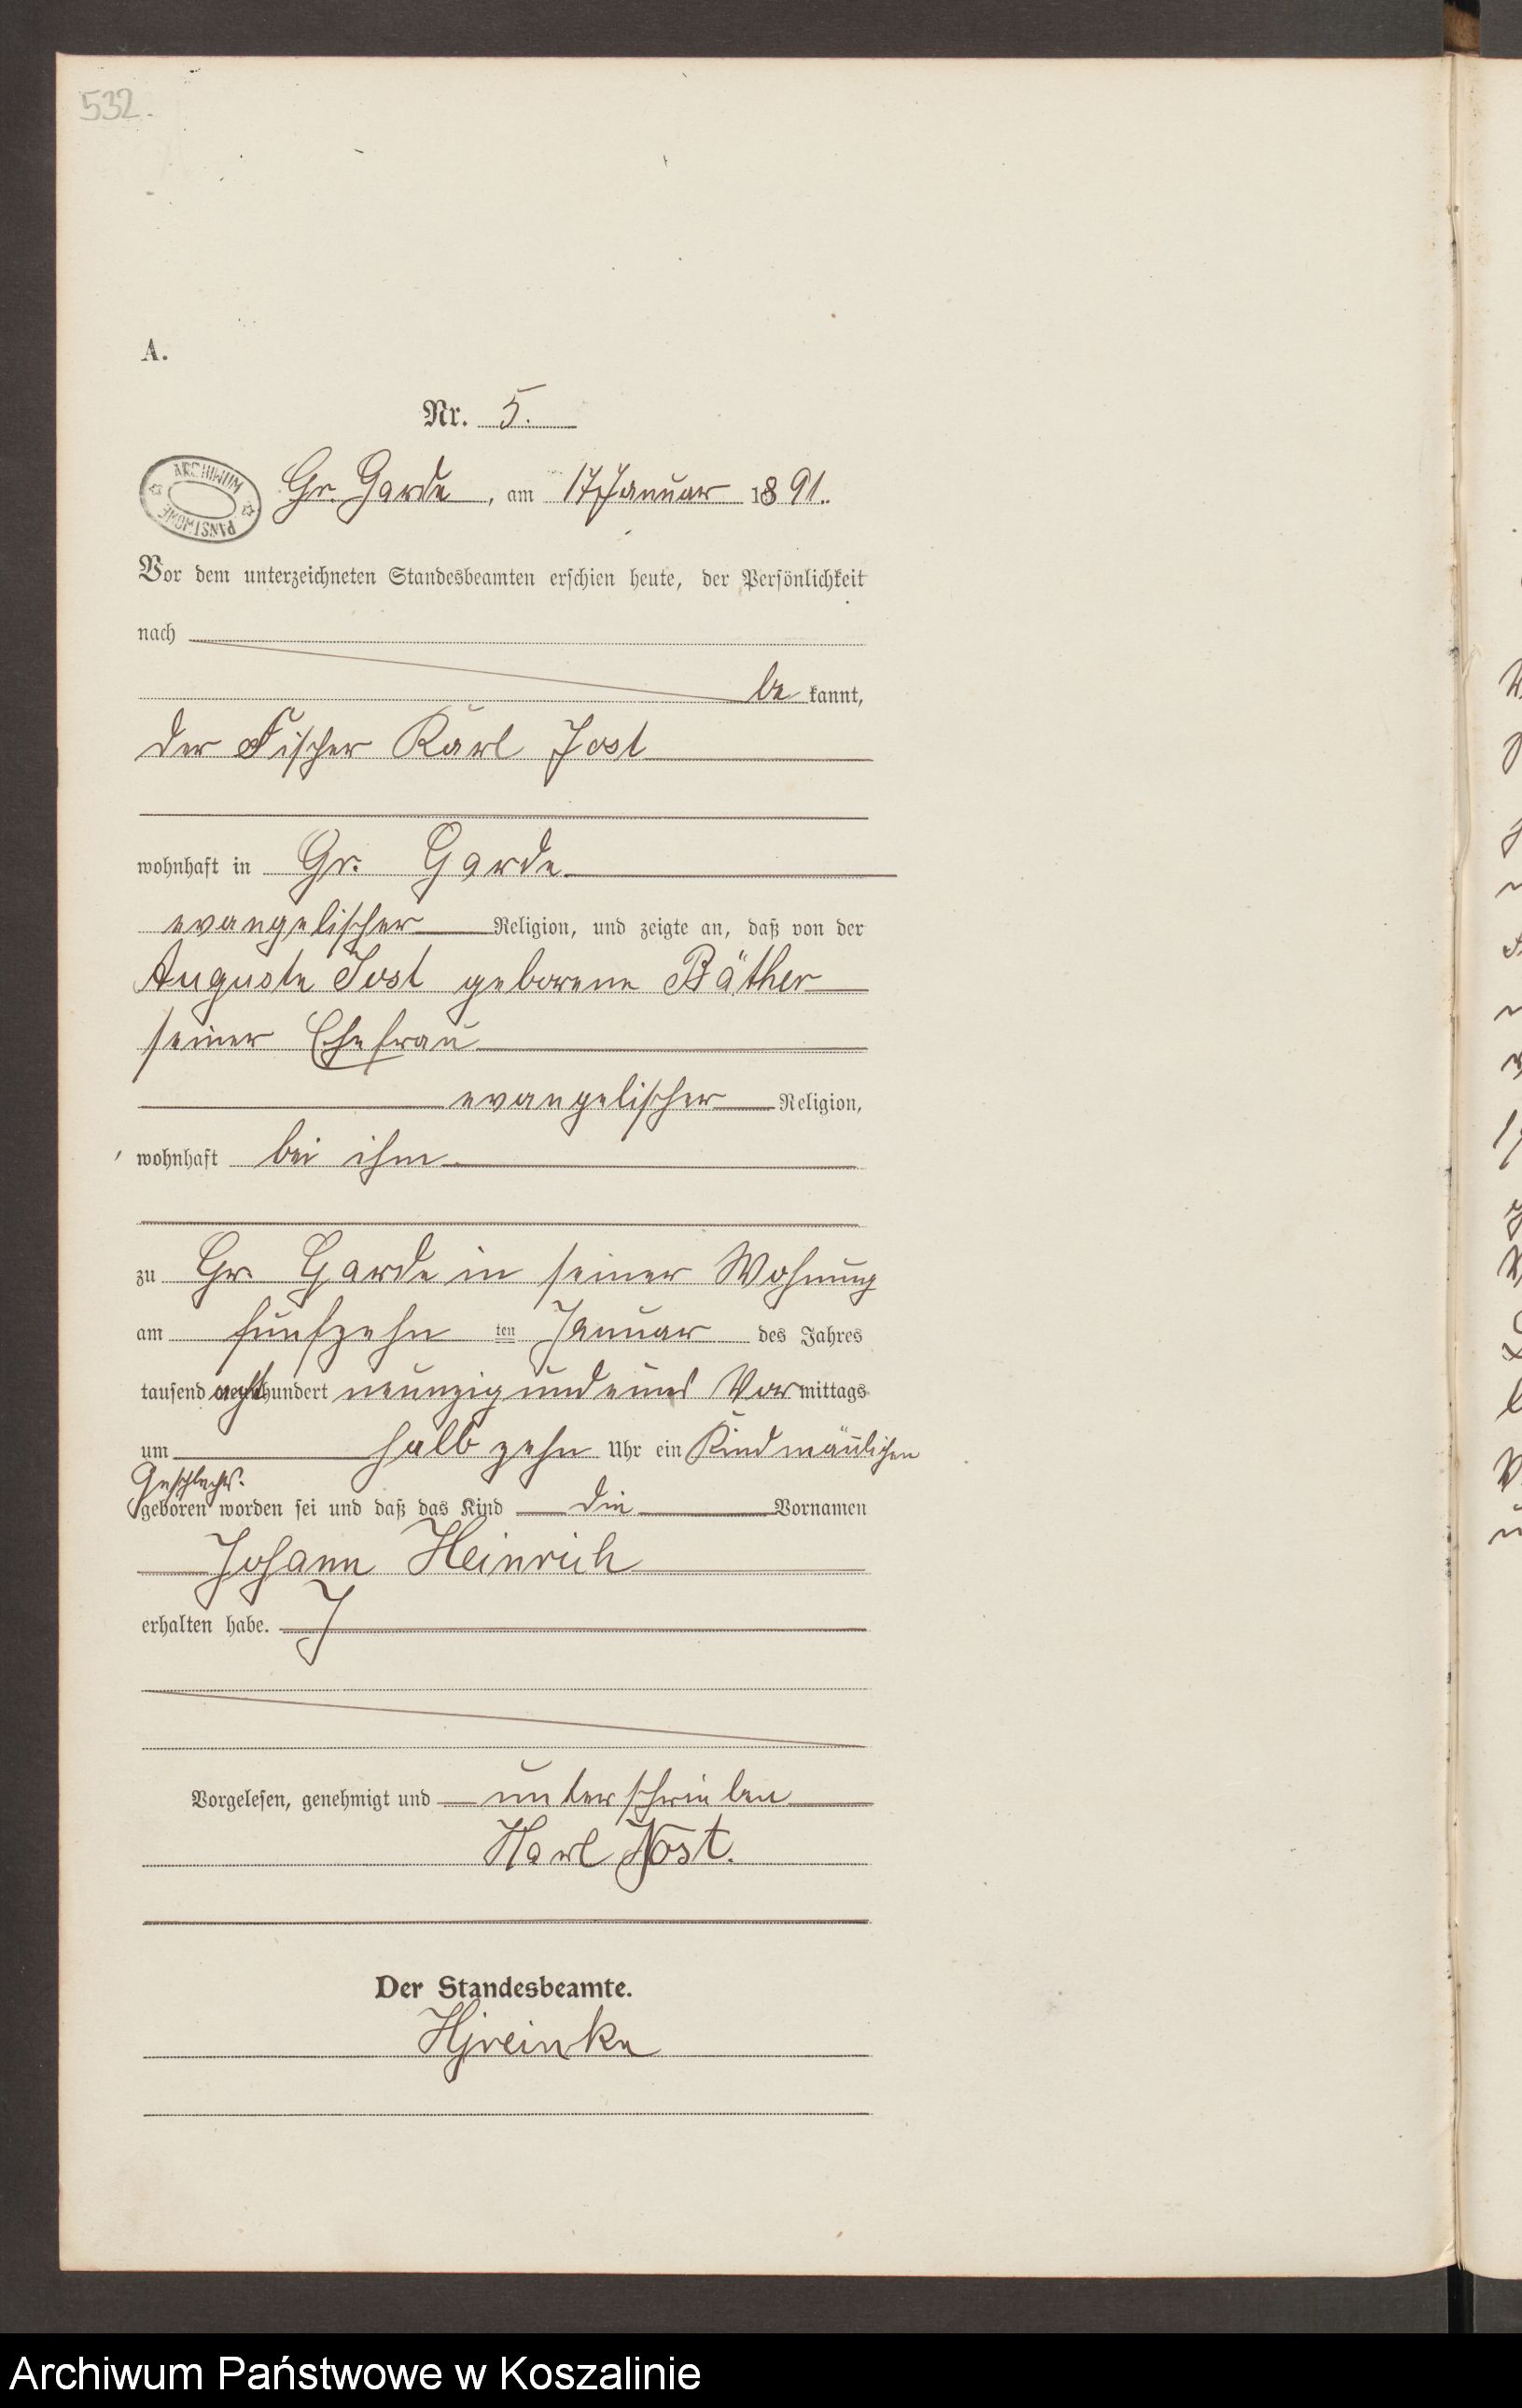 532.
A.
Nr. 5.
ARCHIWUM PAŃSTWOWE
Gr. Garde, am 17 Januar 1891.
Vor dem unterzeichneten Standesbeamten erschien heute, der Persönlichkeit
nach
be kannt,
der Fischer Karl Jost
wohnhaft in Gr. Garde
evangelischer Religion, und zeigte an, daß von der
Auguste Jost geborene Bäther
seiner Ehefrau
evangelischer Religion,
wohnhaft bei ihm
zu Gr. Garde in seiner Wohnung
am fünfzehn ten Januar des Jahres
tausend achthundert neunzig und eins Vormittags
um halb zehn Uhr ein Kind männlichen
Geschlechts.
geboren worden sei und daß das Kind die Vornamen
Johann Heinrich
erhalten habe.
Vorgelesen, genehmigt und unterschrieben
Karl Jost.
Der Standesbeamte.
Archiwum Państwowe w Koszalinie